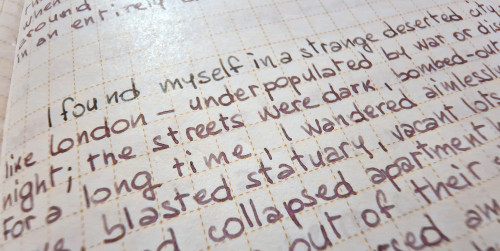 when
around
in an entirely
I found myself in a strange deserted city
like London — underpopulated by war or dis
night; the streets were dark, bombed-out
For a long time, I wandered aimlessl
blasted statuary, vacant lots
collapsed apartment
out of their